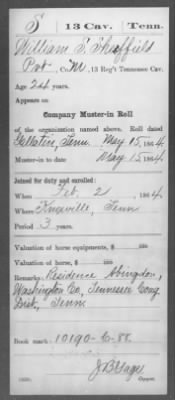 S 13 Cav. Tenn.
William S. Sheffield
Pvt, Co. M, 13 Reg't Tennessee Cav.
Age 24 years.
Appears on
Company Muster-in Roll
of the organization named above. Roll dated
Gallatin, Tenn. May 15, 1864.
Muster-in to date May 15, 1864.
Joined for duty and enrolled:
When Feb. 2, 1864.
Where Knoxville, Tenn
Period 3 years.
Valuation of horse equipments, $ 100
Valuation of horse, $ 100
Remarks: Residence Abingdon,
Washington Co. Tennessee Cong
Dist, Tenn.
Book mark: 10190-C-88.
J B Gage
Copyist.